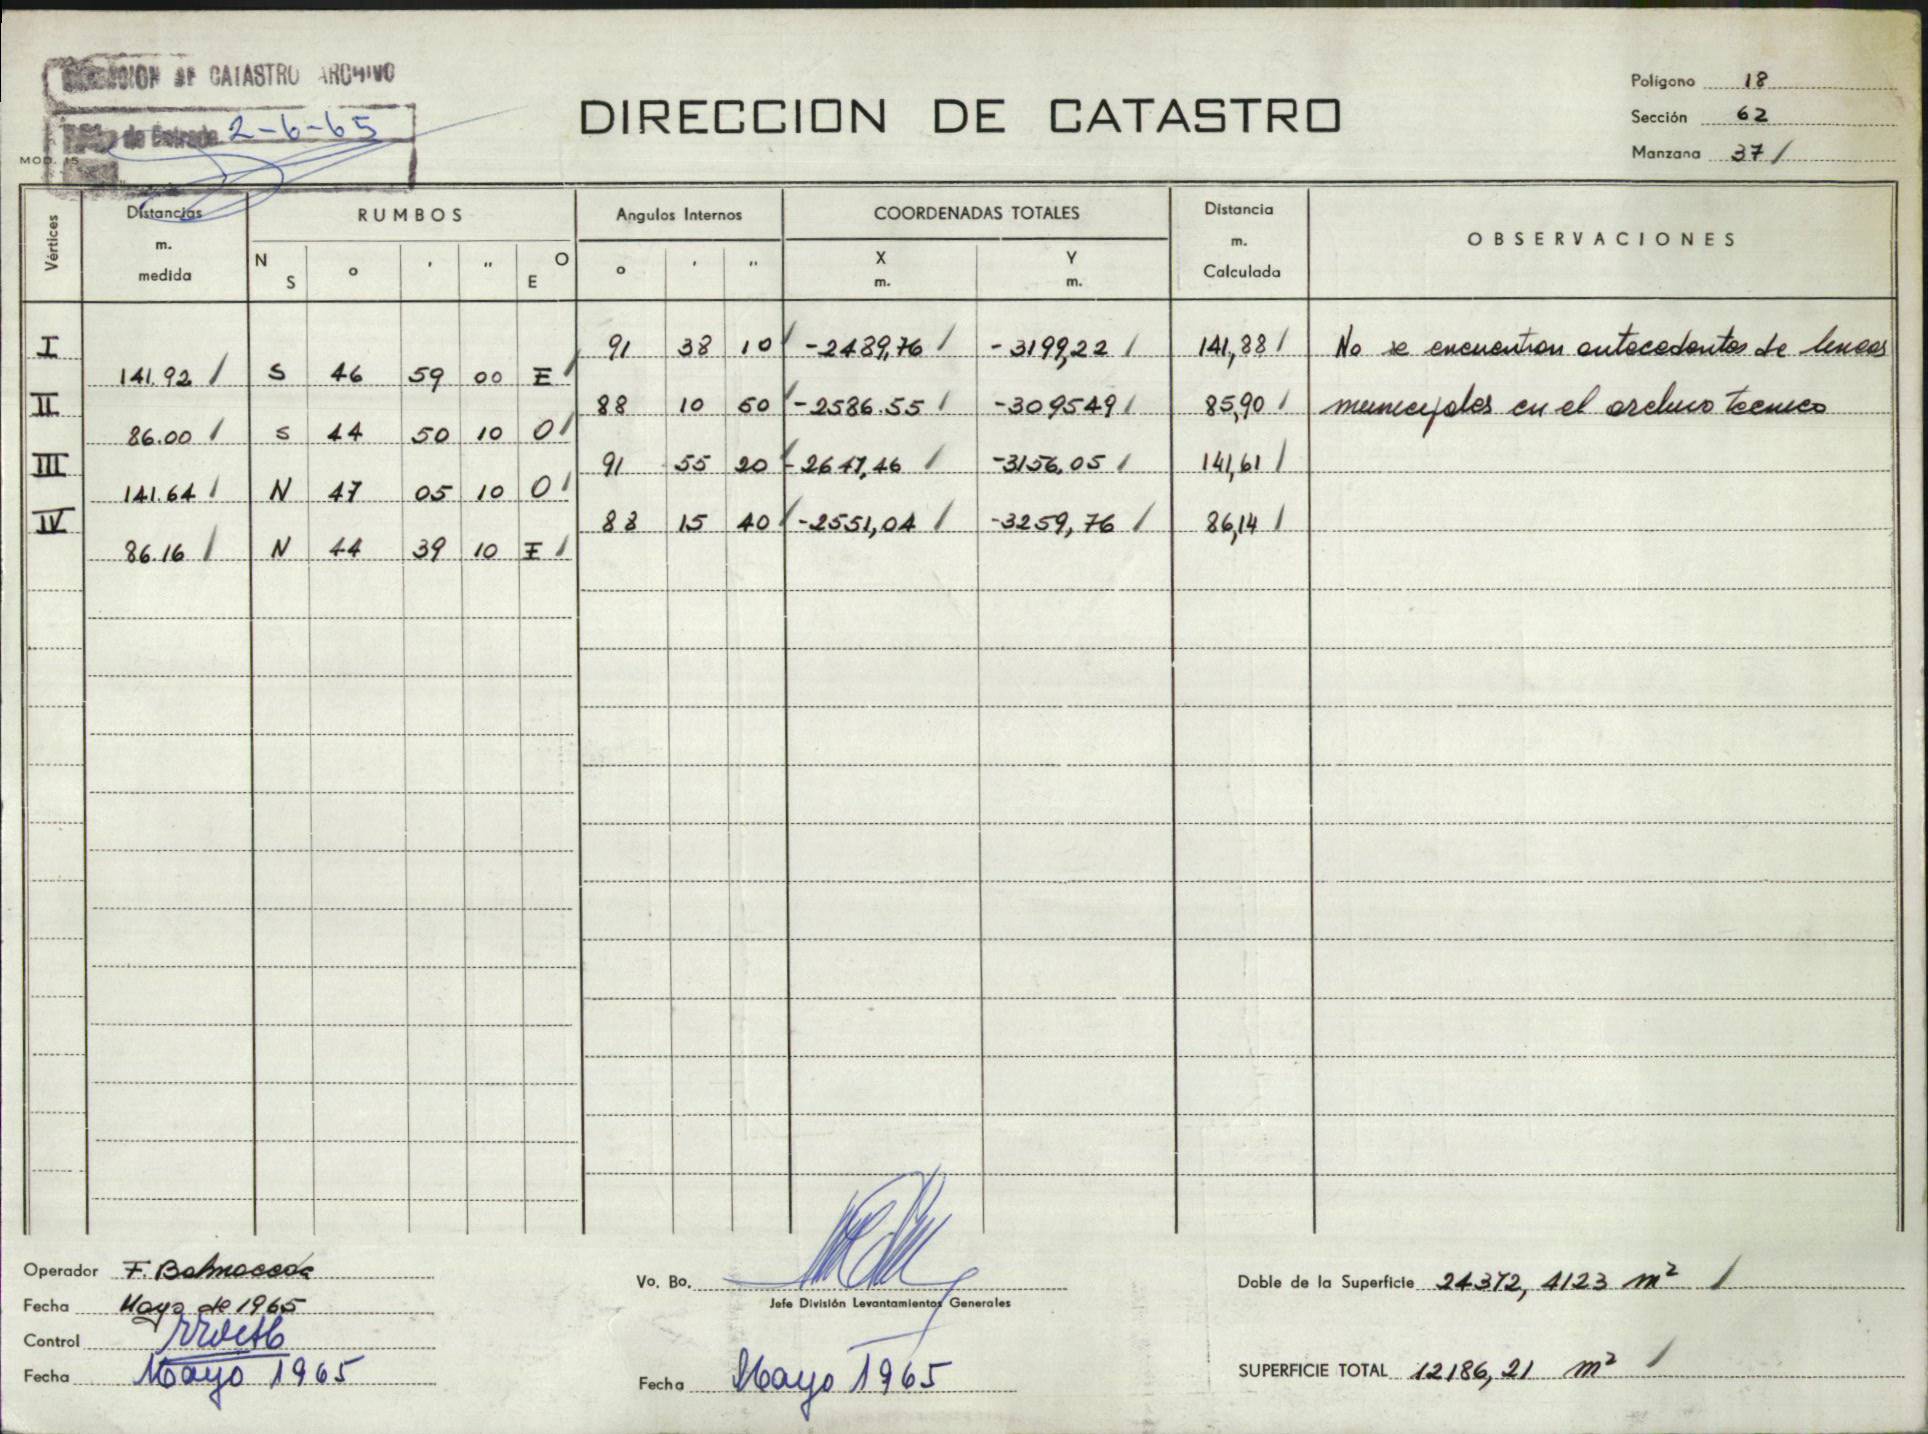 DIRECCION DE CATASTRO ARCHIVO
de Entrada 2-6-65
MOD. 15
DIRECCION DE CATASTRO
Polígono 18
Sección 62
Manzana 37 /
Vértices Distancias m. medida RUMBOS Angulos Internos COORDENADAS TOTALES Distancia m. Calculada OBSERVACIONES
N S o ' '' O E o ' '' X m. Y m.
I 91 38 10 / -2489,76 / -3199,22 / 141,88 / No se encuentran antecedentes de lineas
141.92 / S 46 59 00 E /
II 88 10 50 -2586.55 / -309549 / 85,90 / municipales en el archivo tecnico
86.00 / S 44 50 10 O /
III 91 55 20 / -2647,46 / -3156,05 / 141,61 /
141.64 / N 47 05 10 O /
IV 88 15 40 / -2551,04 / -3259,76 / 86,14 /
86.16 / N 44 39 10 E /
Operador F. Balmaceda
Fecha Mayo de 1965
Control
Fecha Mayo 1965
Vo. Bo.
Jefe División Levantamientos Generales
Fecha Mayo 1965
Doble de la Superficie 24372,4123 m² /
SUPERFICIE TOTAL 12186,21 m² /